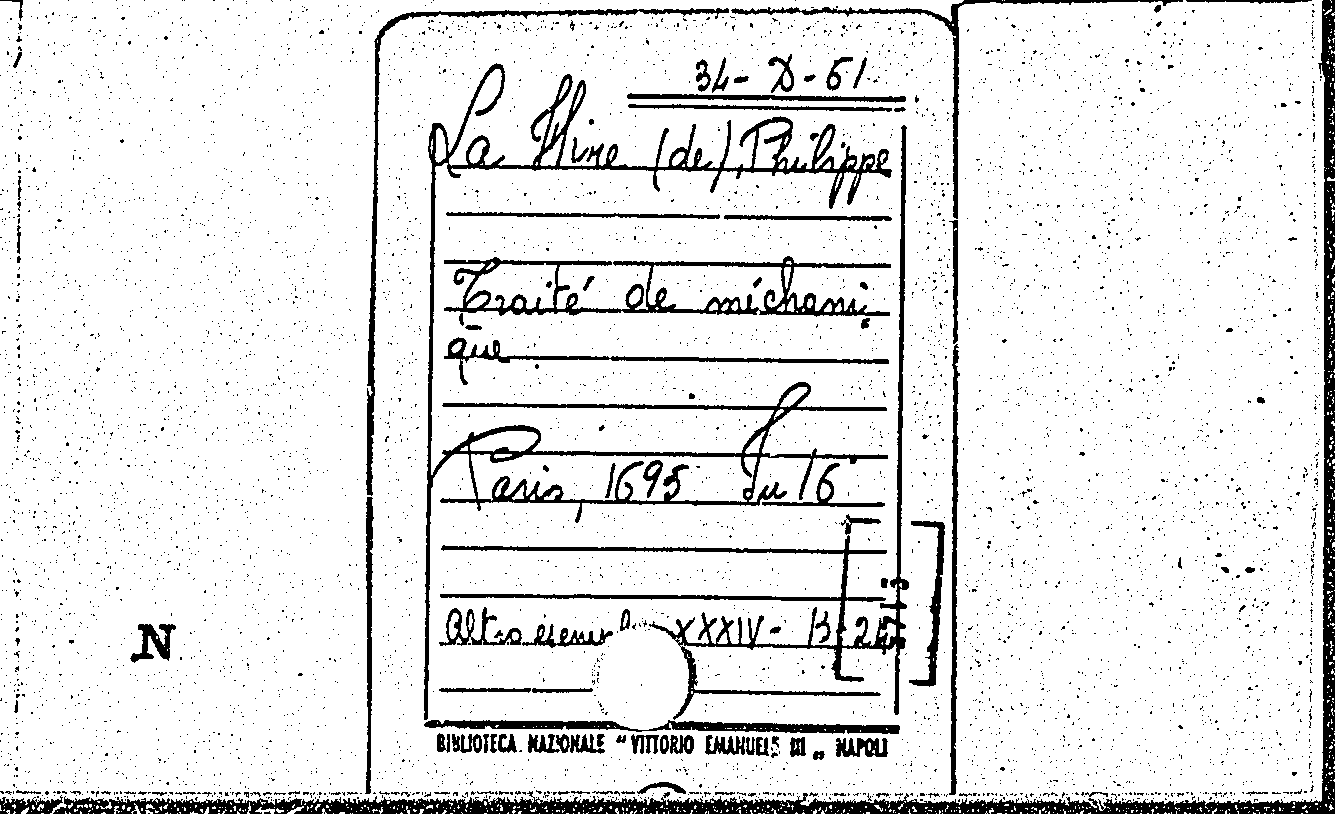 34- D - 61
La Hire (de), Philippe
Traité de méchani-
que
Paris, 1695 In 16°
Altro esempl. XXXIV - B - 2
N
BIBLIOTECA NAZIONALE "VITTORIO EMANUELE III„ NAPOLI